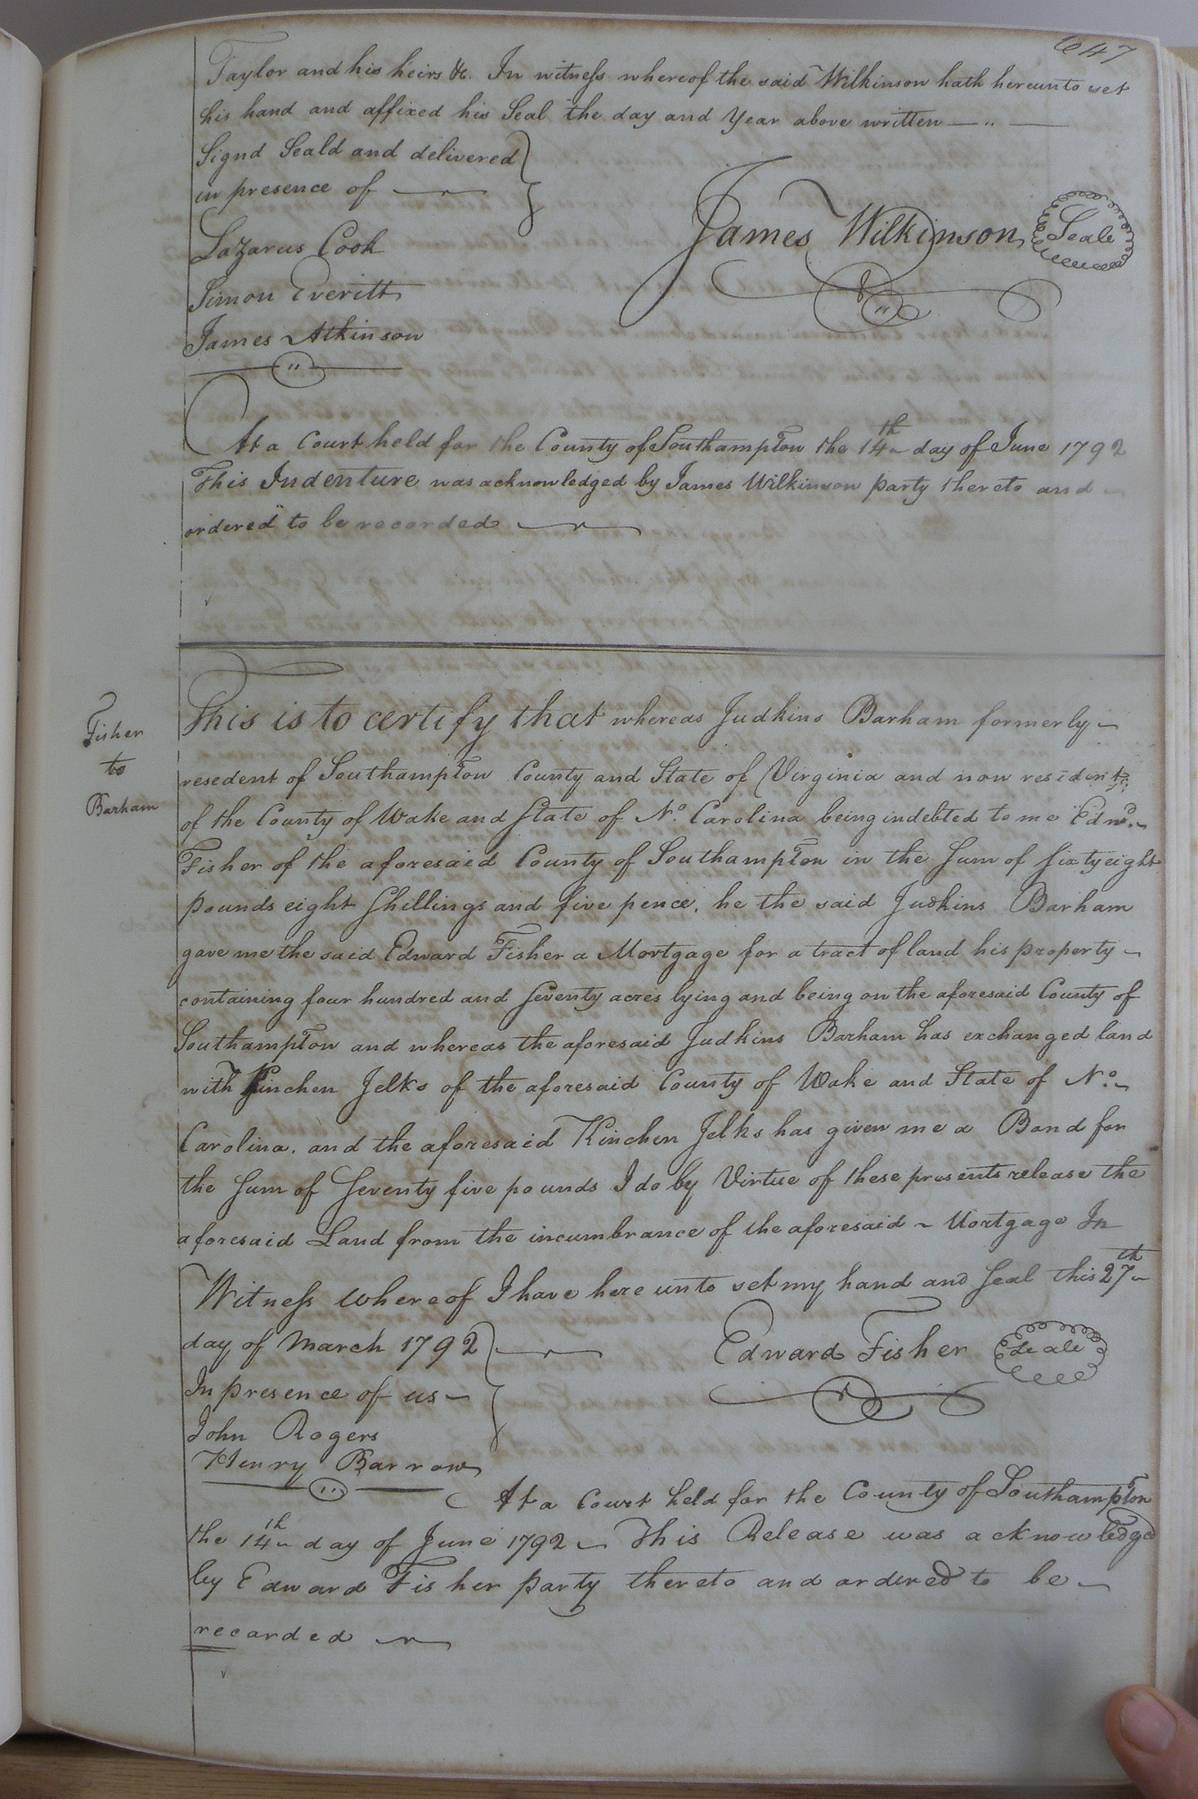 647
Taylor and his heirs &c. In witness whereof the said Wilkinson hath hereunto set
his hand and affixed his Seal the day and Year above written
Signd Seald and delivered
in presence of
James Wilkinson Seale
Lazarus Cook
Simon Everitt
James Atkinson
At a Court held for the County of Southampton the 14th day of June 1792
This Indenture was acknowledged by James Wilkinson party thereto and
ordered to be recorded
Fisher
to
Barham
This is to certify that whereas Judkins Barham formerly
resedent of Southampton County and State of Virginia and now resident
of the County of Wake and State of No. Carolina being indebted to me Edwd.
Fisher of the aforesaid County of Southampton in the Sum of Sixty eight
pounds eight Shillings and five pence, he the said Judkins Barham
gave me the said Edward Fisher a Mortgage for a tract of land his property
containing four hundred and Seventy acres lying and being on the aforesaid County of
Southampton and whereas the aforesaid Judkins Barham has exchanged land
with Kinchen Jelks of the aforesaid County of Wake and State of No.
Carolina. and the aforesaid Kinchen Jelks has given me a Bond for
the Sum of Seventy five pounds I do by Virtue of these presents release the
aforesaid Land from the incumbrance of the aforesaid Mortgage In
Witness whereof I have here unto set my hand and Seal this 27th
day of March 1792
Edward Fisher Seale
In presence of us
John Rogers
Henry Barrow
At a Court held for the County of Southampton
the 14th day of June 1792 This Release was acknowledged
by Edward Fisher party thereto and ordered to be
recorded